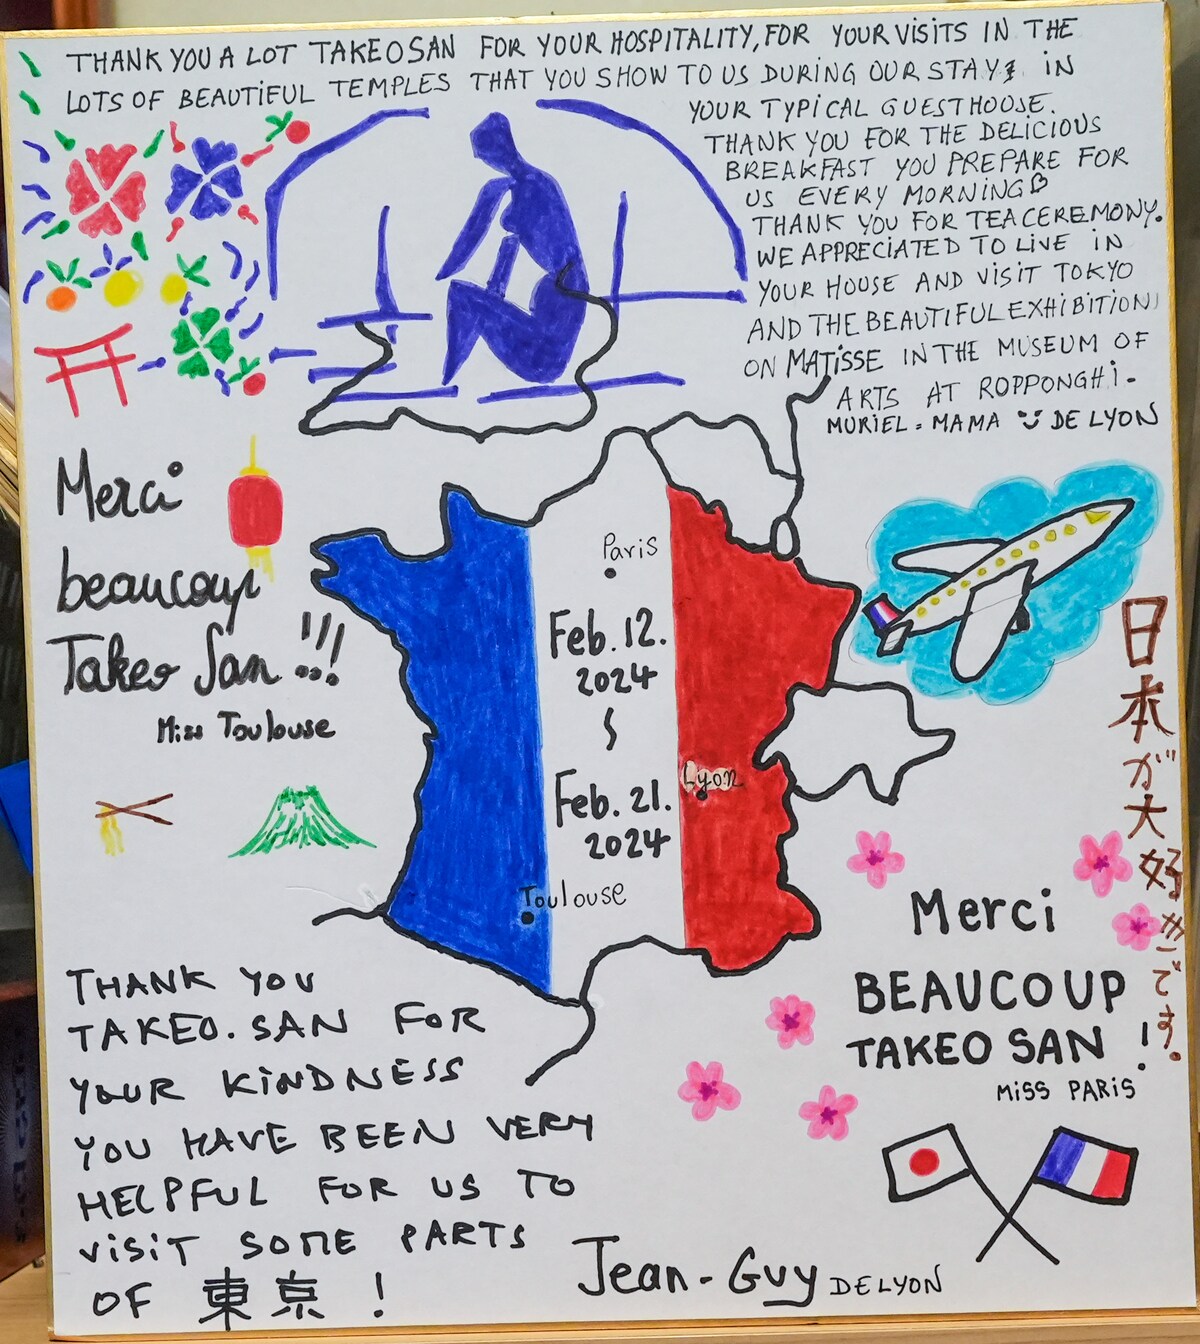 THANK YOU A LOT TAKEOSAN FOR YOUR HOSPITALITY, FOR YOUR VISITS IN THE
LOTS OF BEAUTIFUL TEMPLES THAT YOU SHOW TO US DURING OUR STAY, IN
YOUR TYPICAL GUESTHOUSE.
THANK YOU FOR THE DELICIOUS
BREAKFAST YOU PREPARE FOR
US EVERY MORNING
THANK YOU FOR TEA CEREMONY.
WE APPRECIATED TO LIVE IN
YOUR HOUSE AND VISIT TOKYO
AND THE BEAUTIFUL EXHIBITION
ON MATISSE IN THE MUSEUM OF
ARTS AT ROPPONGHI-
MURIEL = MAMA DE LYON
Merci
beaucoup
Takeo San !!!
Miss Toulouse
Paris
Feb. 12.
2024
Lyon
Feb. 21.
2024
Toulouse
日本が大好きです。
Merci
BEAUCOUP
TAKEO SAN !
MISS PARIS
THANK YOU
TAKEO.SAN FOR
YOUR KINDNESS
YOU HAVE BEEN VERY
HELPFUL FOR US TO
VISIT SOME PARTS
OF 東京 !
Jean-Guy DE LYON